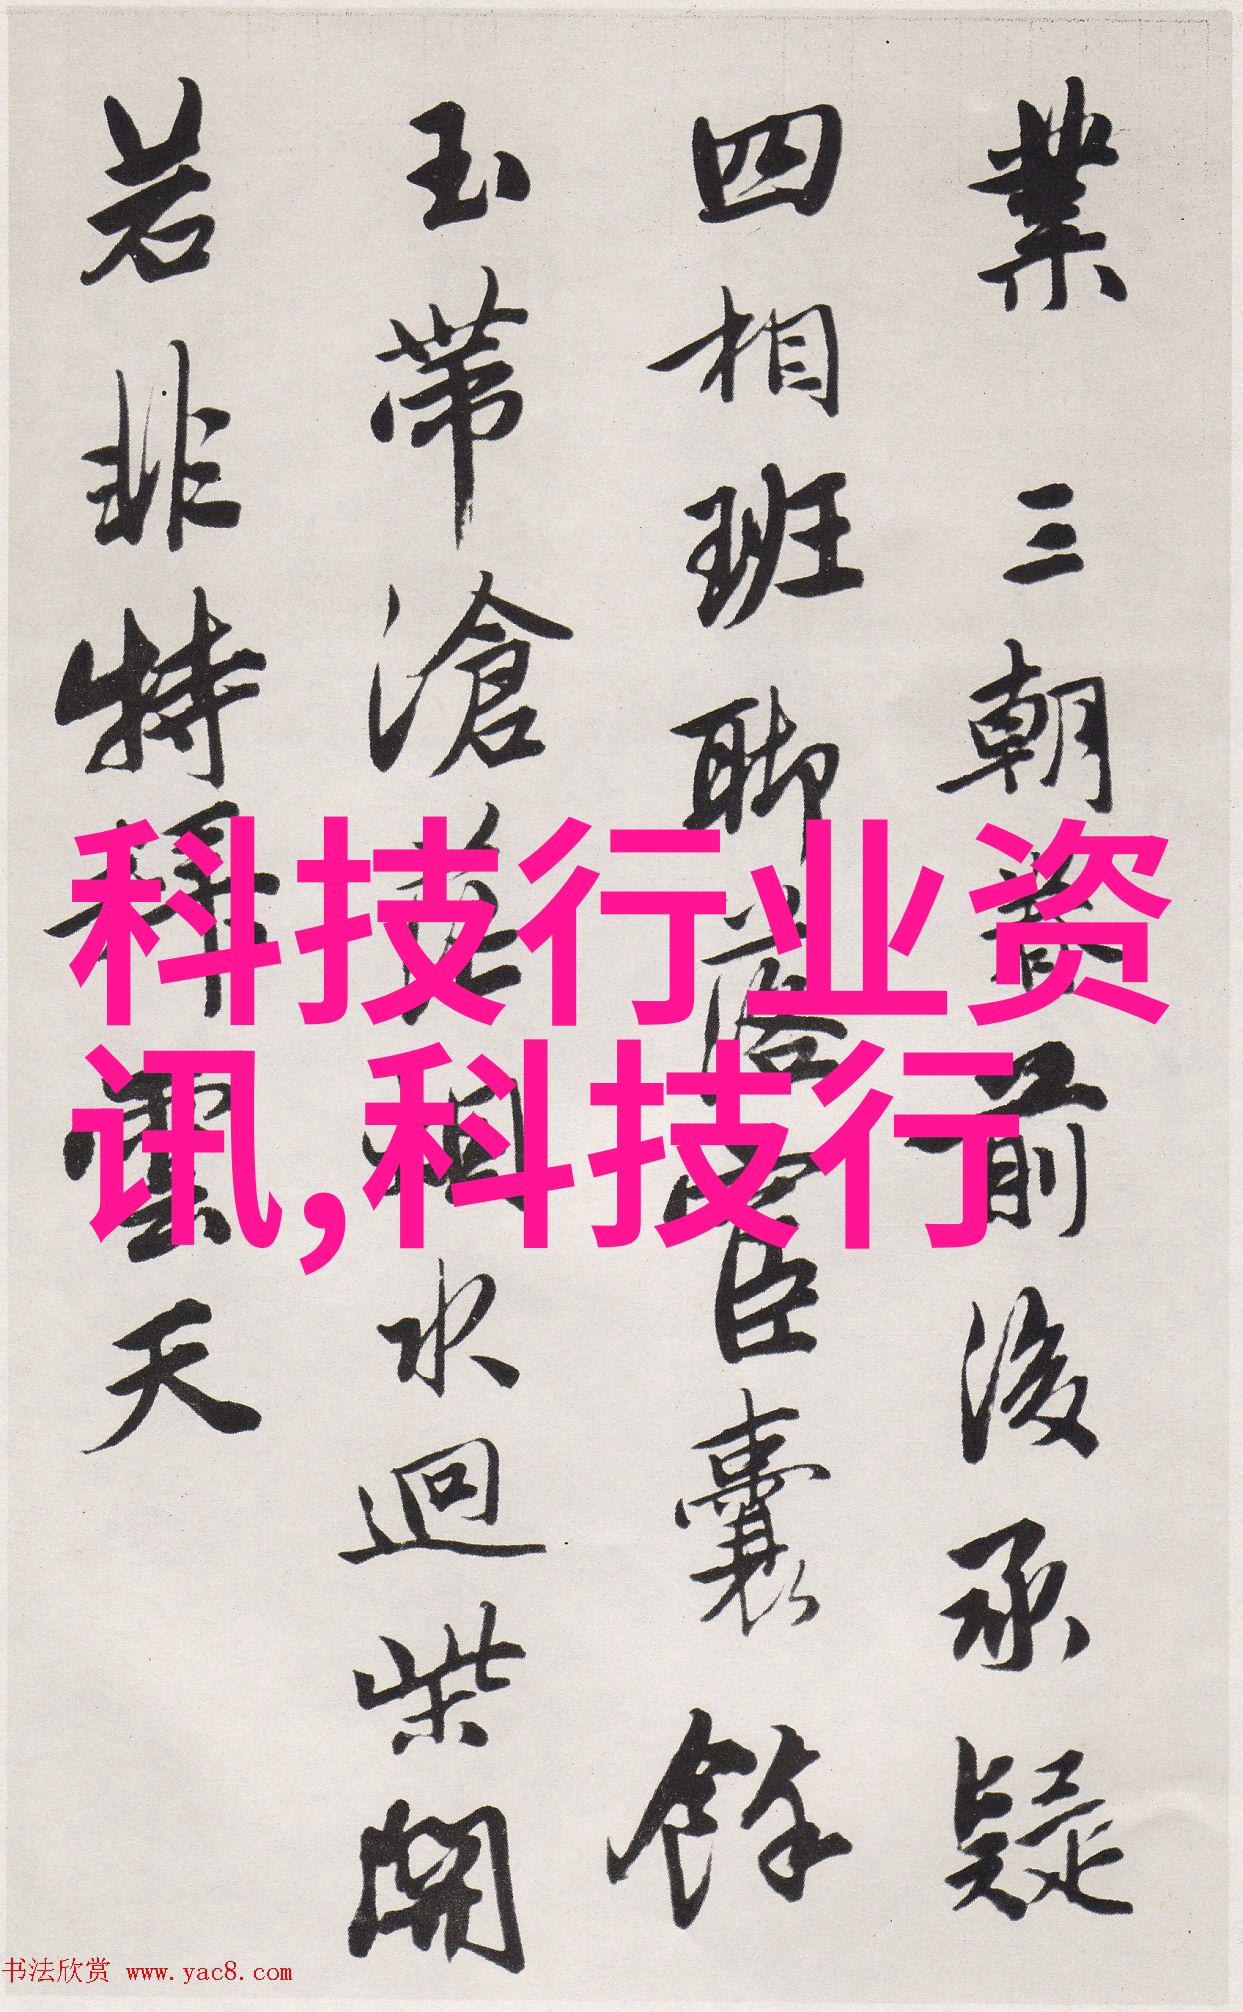 業 三朝前後承疑
四相班聊落臣囊餘
玉帶滄水迥柴開
若非特雲天
科技行业资
讯,科技行
书法欣赏 www.yac8.com